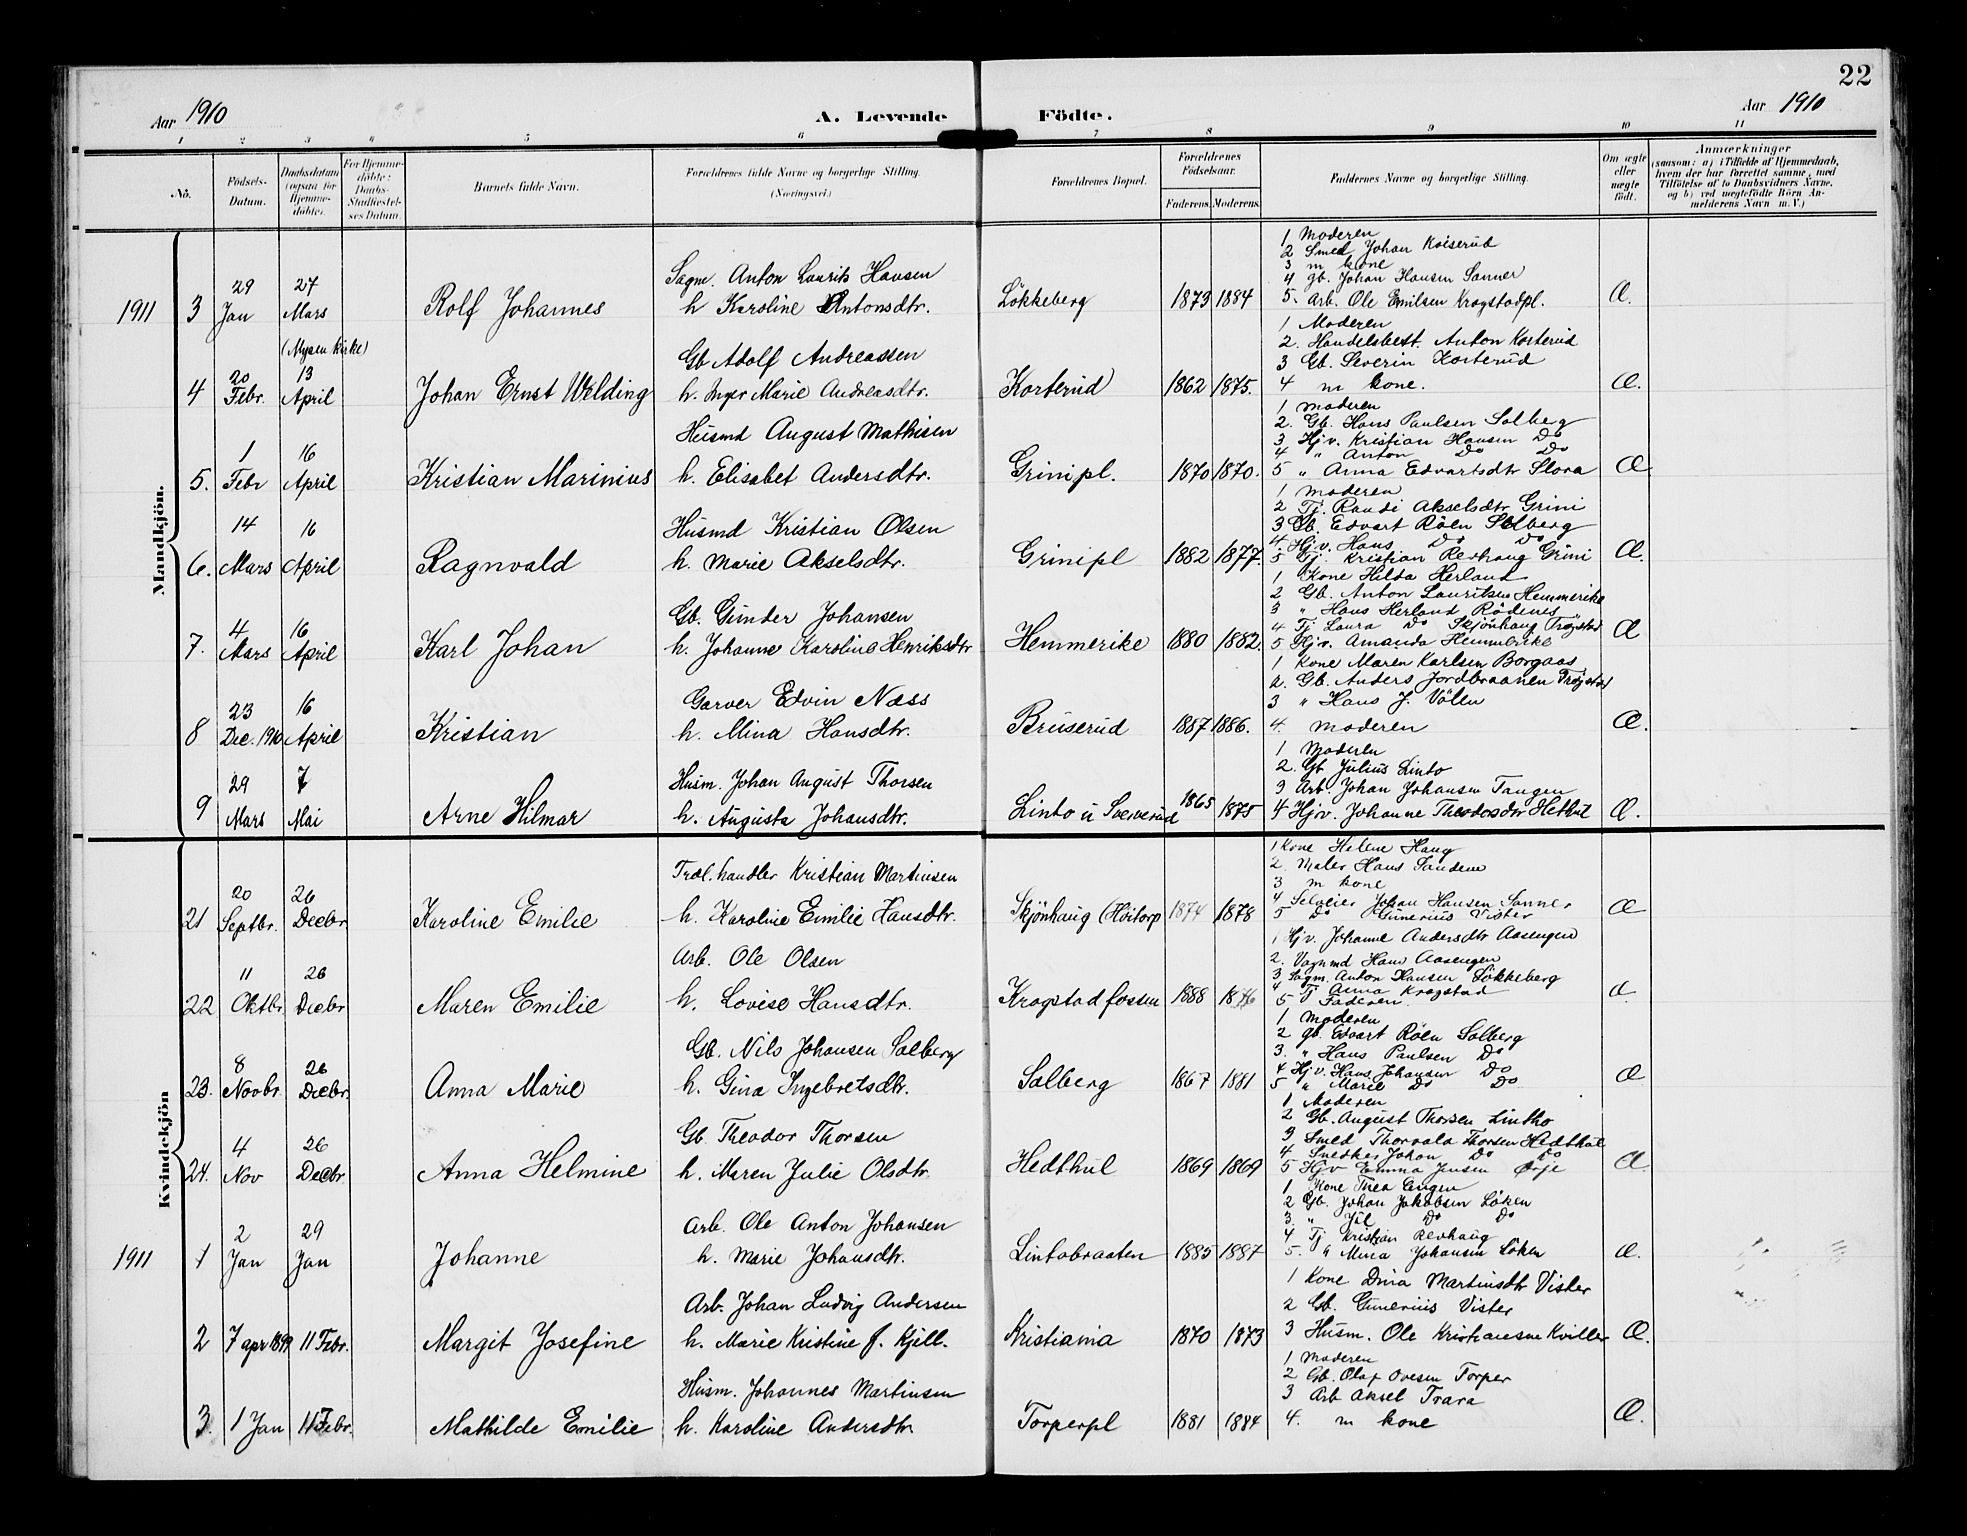 22
Aar 1910
A. Levende Födte.
Aar 1910
1 2 3 4 5 6 7 8 9 10 11
Nö.
Födsels-Datum.
Daabsdatum (ogsaa for Hjemme-döbte).
For Hjemme-döbte: Daabs-Stadfæstel-ses Datum.
Barnets fulde Navn.
Forældrenes fulde Navne og borgerlige Stilling. (Næringsvei.)
Forældrenes Bopæl.
Forældrenes Födselsaar.
Faderens. Moderens.
Faddernes Navne og borgerlige Stilling.
Om ægte eller uægte født.
Anmærkninger
(saasom: a) i Tilfælde af Hjemmedaab, hvem der har forrettet samme, med Tilföielse af to Daabsvidners Navne, og b) ved uægtefödte Börn An-melderens Navn m. V.)
Mandkjön.
1911 3 29 Jan 27 Mars (Mysen Kirke) Rolf Johannes
Sagm. Anton Laurits Hansen
h Karoline Antonsdtr.
Lökkeberg 1873 1884
1 Moderen
2 Smed Johan Koiserud
3 m kone
4 gb. Johan Hansen Sanner
5. Arb. Ole Emilsen Kragstadpl.
Æ.
4 20 Febr. 13 April Johan Ernst Welding
Gb Adolf Andreassen
h. Inger Marie Andreasdtr.
Korterud 1862 1875.
1 Moderen
2. Handelsbest. Anton Korterud
3 Gb. Severin Korterud
4 m kone.
Æ.
5. 1 Febr 16 April Kristian Marinius
Husmd August Mathisen
h. Elisabet Andersdtr.
Grinipl. 1870 1870.
1 Moderen
2. Gb. Hans Paulsen Solberg
3 Hjv. Kristian Hansen Do
4 " Anton Do Do
5 " Anna Edvartsdtr Slora
Æ
6. 14 Mars 16 April Ragnvald
Husmd Kristian Olsen
h. Marie Akselsdtr.
Grinipl 1882 1877.
1 Moderen
2 Tj. Randi Akselsdtr Grini
3 Gb. Edvart Röen Solberg
4. Hjv. Hans Do Do
5 Tj. Kristian Revhaug Grini
Æ.
7. 4 Mars 16 April Karl Johan
Gb. Gunder Johansen
h. Johanne Karoline Henriksdtr
Hemmerike 1880 1882.
1 Kone Hilda Herland
2 Gb. Anton Lauritsen Hemmerike
3 " Hans Herland Rödenes
4 Tj Laura Do Skjönhaug Trøgstad
5 Hjv. Amanda Hemmerike
Æ
8 23 Dec. 1910 16 April Kristian
Garver Edvin Næss
h. Mina Hansdtr.
Bruserud 1887 1886.
1 Kone Maren Karlsen Borgaas
2. Gb. Anders Jordbraanen Trøgstad
3 " Hans J. Völen
4. Moderen
Æ.
9 29 Mars 7 Mai Arne Hilmar
Husm. Johan August Thorsen
h. Augusta Johansdtr.
Linto u Sververud 1865 1875
1 Moderen
2. Gb Julius Linto
3 Arb. Johan Johansen Tangen
4 Hjv. Johanne Theodorsdtr Hethul
Æ.
Kvindekjön
21 20 Septbr. 26 Decbr Karoline Emilie
Træl.handler Kristian Martinsen
h. Karoline Emilie Hansdtr.
Skjönhaug (Höitorp 1874 1878
1 Kone Helene Haug
2. Maler Hans Sandem
3 m kone
4 Selveier Johan Hansen Sanner
5 Do Gunerius Vister
Æ
22 11 Oktbr. 26 Decbr Maren Emilie
Arb. Ole Olsen
h. Lovise Hansdtr.
Kragstadfossen 1888 1876
1 Hjv. Johanne Andersdtr Aasengen
2. Vognmd Hans Aasengen
3. Sagm. Anton Hansen Lökkeberg
4 Tj Anna Kragstad
5 Faderen.
Æ.
23. 8 Novbr. 26 Decbr. Anna Marie
Gb. Nils Johansen Solberg
h. Gina Ingebretsdtr.
Solberg 1867 1881
1 Moderen
2 gb. Edvart Röen Solberg
3. " Hans Paulsen Do
4 Hjv. Hans Johansen Do
5 " Marie Do Do
Æ
24. 4 Nov 26 Decbr. Anna Helmine
Gb. Theodor Thorsen
h. Maren Julie Olsdtr.
Hedthul 1869 1869
1 Moderen
2 Gb. August Thorsen Lintho
3 Smed Thorvald Thorsen Hedthul
4 Snedker Johan Do Do
5 Hjv Emma Jensen Ørje
Æ.
1911 1 2 Jan 29 Jan Johanne
Arb. Ole Anton Johansen
h. Marie Johansdtr.
Lintobraaten 1885 1887
1 Kone Thea Engen
2 Gb. Johan Jakobsen Löken
3. " Jul Do Do
4 Tj Kristian Revhaug
5. " Mina Johansen Löken
Æ.
2 7 apr 1899 11 Febr. Margit Josefine
Arb. Johan Ludvig Andersen
h. Marie Kristine f. Kjill.
Kristiania 1870 1873
1 Kone Dina Martinsdtr Vister
2 Gb. Gunerius Vister
3 Husm. Ole Kristiansen Kviller
Æ.
3. 1 Jan 11 Febr. Mathilde Emilie
Husm. Johannes Martinsen
h. Karoline Andersdtr
Torperpl 1881 1884
1 Moderen
2 Gb. Olaf Ovesen Torper
3 Arb Aksel Trara
4. m kone
Æ.